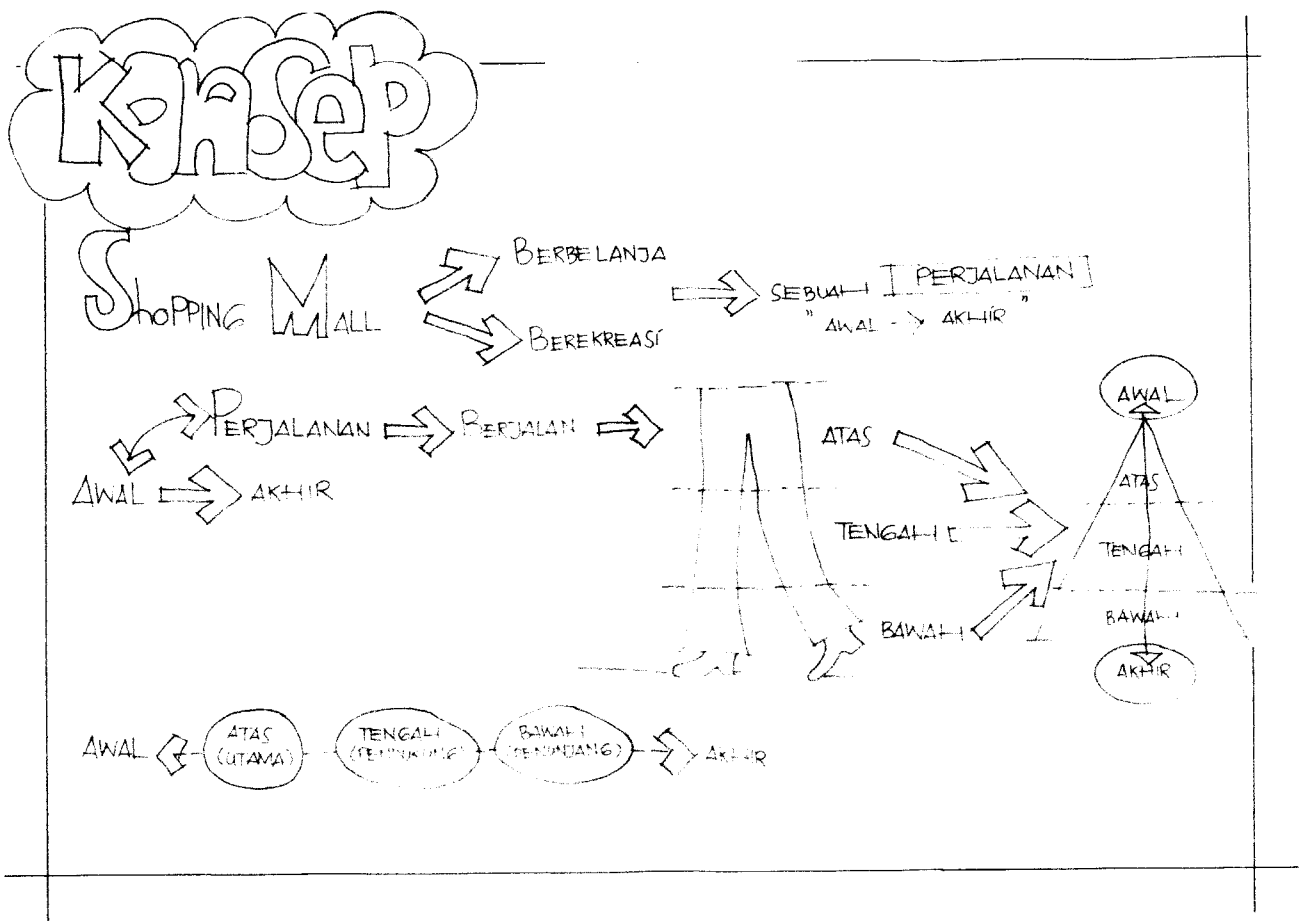 Konsep
Shopping Mall
BERBELANJA
BEREKREASI
SEBUAH [PERJALANAN]
"AWAL -> AKHIR"
PERJALANAN
BERJALAN
AWAL
AKHIR
ATAS
TENGAH
BAWAH
AWAL
ATAS
TENGAH
BAWAH
AKHIR
AWAL
ATAS
(UTAMA)
TENGAH
(PENDUKUNG)
BAWAH
(PENUNJANG)
AKHIR